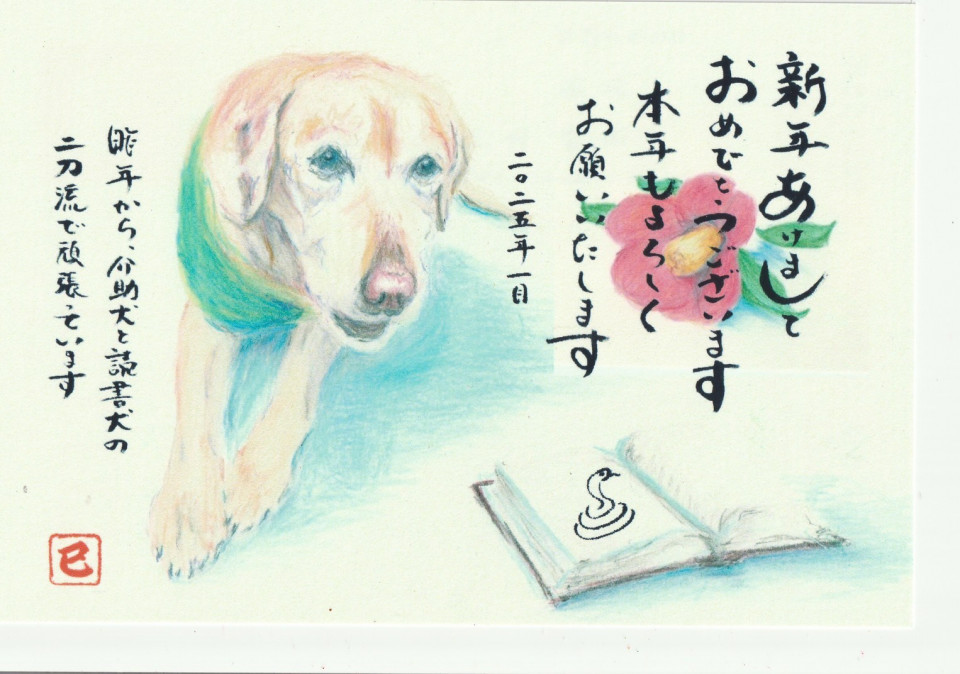 新年あけまして
おめでとうございます
本年もよろしく
お願いいたします
二〇二五年一月
昨年から、介助犬と読書犬の
二刀流で頑張っています
巳